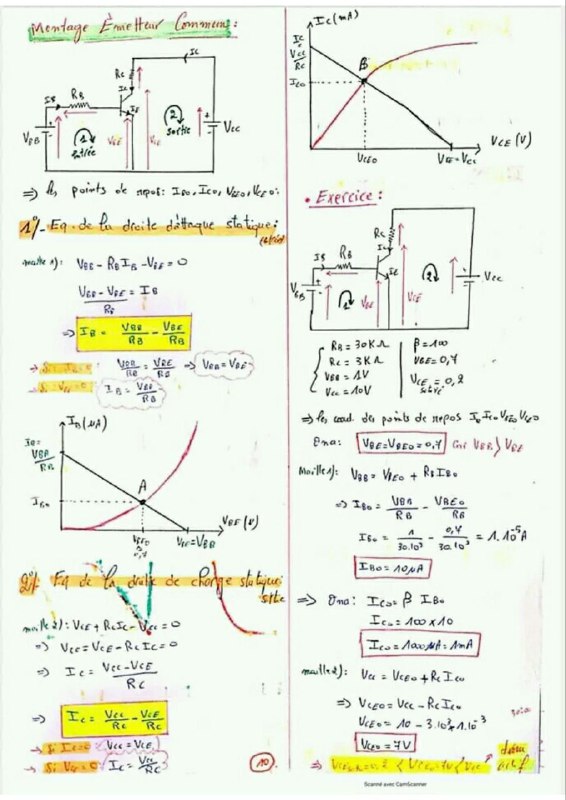 Montage Émetteur Commun:
Ic
RC
IB
RB
Ic
IE
VBB
1
entrée
VBE
VCE
2
sortie
VCC
=> les points de repos: IB0, IC0, VBE0, VCE0.
1°/- Eq. de la droite d'attaque statique:
maille 1): VBB - RB IB - VBE = 0
VBB - VBE / RB = IB
=> IB = VBB/RB - VBE/RB
-> Si IB=0 VBB/RB = VBE/RB => VBB = VBE
-> Si VBE=0 IB = VBB/RB
IB (µA)
IB = VBB/RB
IB0
A
VBE0
0,7
VBE=VBB
VBE (V)
2°/- Eq de la droite de charge statique:
maille 2): VCE + RC IC - VCC = 0
=> VCC = VCE - RC IC = 0
=> IC = VCC - VCE / RC
=> IC = VCC/RC - VCE/RC
-> Si IC=0 VCC = VCE
-> Si VCE=0 IC = VCC/RC
10
IC (mA)
IC =
VCC/RC
IC0
B
VCE0
VCE=VCC
VCE (V)
• Exercice:
RC
IB
RB
Ic
IE
VBB
1
VBE
VCE
2
VCC
RB = 30KΩ β = 100
RC = 3KΩ VBE = 0,7
VBB = 1V VCE = 0,2
VCC = 10V
=> les coord. des points de repos IB0 IC0 VBE0 VCE0
Ona: VBE = VBE0 = 0,7 Car VBB > VBE
Maille 1): VBB = VBE0 + RB IB0
=> IB0 = VBB/RB - VBE0/RB
IB0 = 1/30.10³ - 0,7/30.10³ = 1.10⁻⁵A
IB0 = 10µA
=> Ona: IC0 = β IB0
IC0 = 100 x 10
IC0 = 1000µA = 1mA
maille 2): VCC = VCE0 + RC IC0
=> VCE0 = VCC - RC IC0
VCE0 = 10 - 3.10³.1.10⁻³
VCE0 = 7V
Scanné avec CamScanner